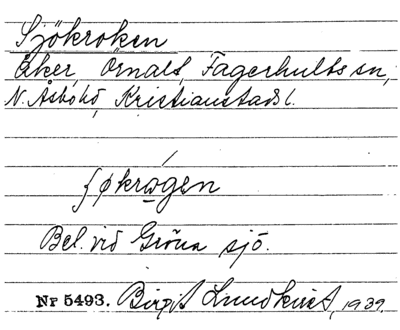 Sjökroken
Åker, Örnalt, Fagerhults sn,
N. Åsbo hd, Kristianstads l.
ʃøkrogen
Bel. vid Gröna sjö.
Nr 5493. Birgit Lundkvist, 1939.